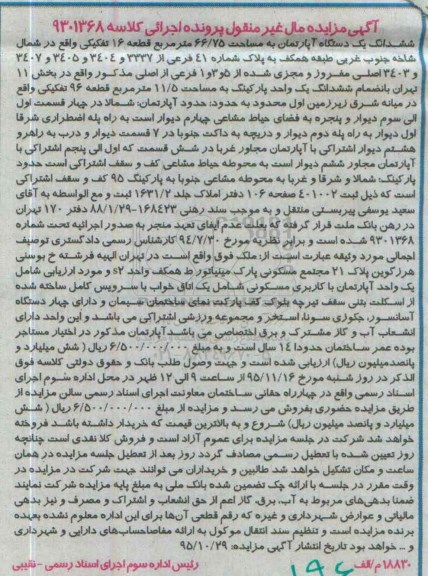 آگهی مزایده مال غیر منقول پرونده اجرائی کلاسه ۹۳۰۱۳۶۸
ششدانگ یک دستگاه آپارتمان به مساحت ۶۶/۷۵ مترمربع قطعه ۱۶ تفکیکی واقع در شمال
شاخه جنوب غربی طبقه همکف به پلاک شماره ۴۱ فرعی از ۳۳۳۷ و ۳۴۰۴ و ۳۴۰۵ و ۳۴۰۷
و ۳۴۰۳ اصلی مفروز و مجزی شده از ۵و۳و۱ فرعی از اصلی مذکور واقع در بخش ۱۱
تهران بانضمام ششدانگ یک واحد پارکینگ به مساحت ۱۱/۵ مترمربع قطعه ۹۶ تفکیکی واقع
در میانه شرق زیرزمین اول محدود به حدود: حدود آپارتمان: شمالا در چهار قسمت اول
الی سوم دیوار و پنجره به فضای حیاط مشاعی چهارم دیوار است به راه پله اضطراری شرقا
اول دیوار به راه پله دوم دیوار و دریچه به داکت جنوبا در ۷ قسمت دیوار و درب به راهرو
هشتم دیوار اشتراکی با آپارتمان مجاور غربا در شش قسمت که اول الی پنجم اشتراکی با
آپارتمان مجاور ششم دیوار است به محوطه حیاط مشاعی کف و سقف اشتراکی است حدود
پارکینگ: شمالا و شرقا و غربا به محوطه مشاعی جنوبا به پارکینگ ۹۵ کف و سقف اشتراکی
است که ذیل ثبت ۴۰۱۰۰۲ صفحه ۱۰۶ دفتر املاک جلد ۱۶۳۱/۲ ثبت و مع الواسطه به آقای
سعید یوسفی پیربستی منتقل و به موجب سند رهنی ۱۶۸۴۲۳-۸۸/۱/۲۹ دفتر ۱۷۰ تهران
در رهن بانک ملت قرار گرفته که بعلت عدم ایفای تعهد منجر به صدور اجرائیه تحت شماره
۹۳۰۱۳۶۸ شده است و برای نظریه مورخ ۹۴/۷/۳۰ کارشناس رسمی دادگستری توصیف
اجمالی مورد وثیقه عبارت است از: ملک فوق واقع است در تهران الهیه فرشته خ بوسنی
هرزگوین پلاک ۲۱ مجتمع مسکونی پارک مینیاتور ط همکف واحد ۵۲ و مورد ارزیابی شامل
یک واحد آپارتمان با کاربری مسکونی شامل یک اتاق خواب با سرویس کامل ساخته شده
از اسکلت بتنی سقف تیرچه بلوک کف پارکت نمای ساختمان سیمان و دارای چهار دستگاه
آسانسور، جکوزی سونا، استخر و مجموعه ورزشی اشتراکی می باشد و این واحد دارای
انشعاب آب و گاز مشترک و برق اختصاصی می باشد آپارتمان مذکور در اختیار مستاجر
بوده عمر ساختمان حدودا ۱۴ سال است و به مبلغ ۶/۵۰۰/۰۰۰/۰۰۰ ریال ( شش میلیارد و
پانصدمیلیون ریال) ارزیابی شده است و جهت وصول طلب بانک و حقوق دولتی کلاسه فوق
الذکر در روز شنبه مورخ ۹۵/۱۱/۱۶ از ساعت ۹ الی ۱۲ ظهر در محل اداره سوم اجرای
اسناد رسمی واقع در چهارراه حقانی ساختمان معاونت اجرای اسناد رسمی سالن مزایده از
طریق مزایده حضوری بفروش می رسد و مزایده از مبلغ ۶/۵۰۰/۰۰۰/۰۰۰ ریال ( شش
میلیارد و پانصد میلیون ریال) شروع و به بالاترین قیمت که خریدار داشته باشد فروخته
خواهد شد شرکت در جلسه مزایده برای عموم آزاد است و فروش کلا نقدی است چنانچه
روز تعیین شده با تعطیل رسمی مصادف گردد روز بعد از تعطیل جلسه مزایده در همان
ساعت و مکان تشکیل خواهد شد طالبین و خریداران می توانند جهت شرکت در مزایده در
وقت مقرر در جلسه با ارائه چک تضمین شده بانک ملی به مبلغ پایه مزایده شرکت نمایند
ضمنا بدهی‌های مربوط به آب، برق، گاز اعم از حق انشعاب و اشتراک و مصرف و نیز بدهی
مالیاتی و عوارض شهرداری و غیره که رقم قطعی آن‌ها برای این اداره معلوم نشده بعهده
برنده مزایده است و تنظیم سند انتقال موکول به ارائه مفاصاحساب‌های دارایی و شهرداری
و ... خواهد بود تاریخ انتشار آگهی مزایده: ۹۵/۱۰/۲۹
۱۸۸۳۰/م/الف رئیس اداره سوم اجرای اسناد رسمی - نقیبی